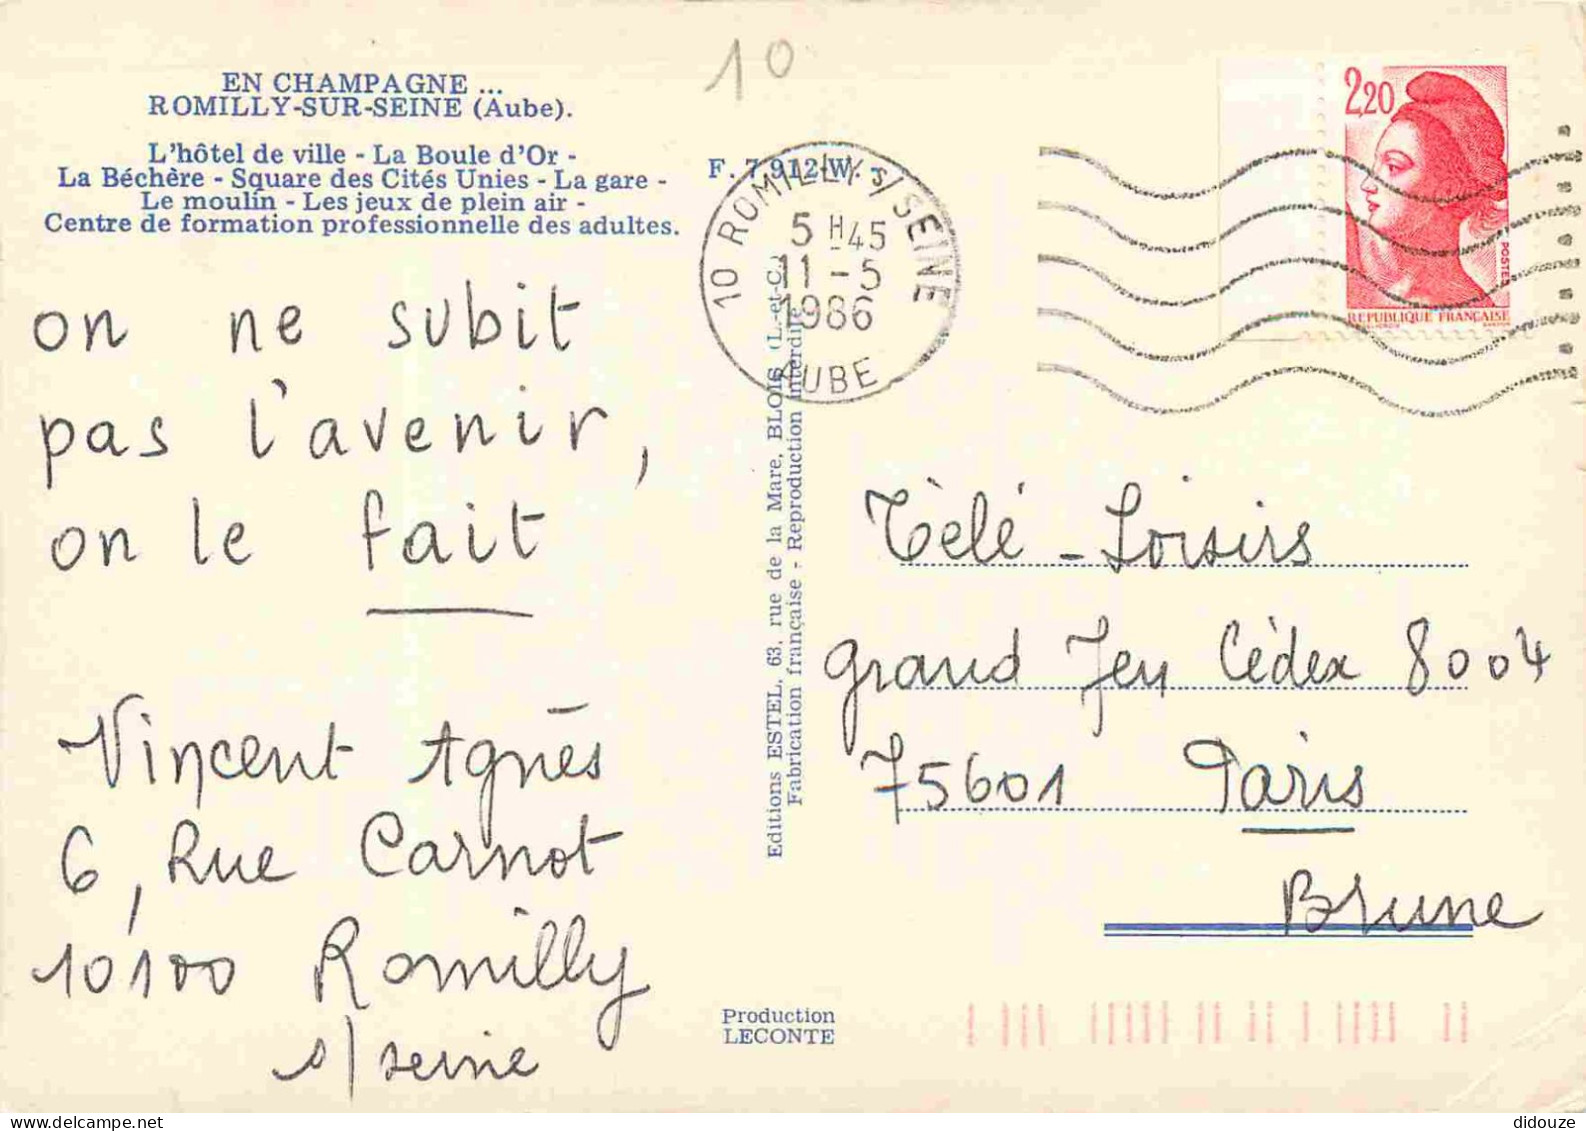 10
EN CHAMPAGNE ...
ROMILLY-SUR-SEINE (Aube).
L'hôtel de ville - La Boule d'Or -
La Béchère - Square des Cités Unies - La gare -
Le moulin - Les jeux de plein air -
Centre de formation professionnelle des adultes.
F. 7.912 W. -
10 ROMILLY S/SEINE
5 H45
11 - 5
1986
AUBE
2,20
POSTES
REPUBLIQUE FRANÇAISE
on ne subit
pas l'avenir,
on le fait
Vincent Agnès
6, Rue Carnot
10100 Romilly
s/seine
Editions ESTEL, 63, rue de la Mare, BLOIS (L.-et-C.)
Fabrication française - Reproduction interdite
Tèlé - Loisirs
grand Jeu Cédex 8004
75601 Paris
Brune
Production
LECONTE
didouze